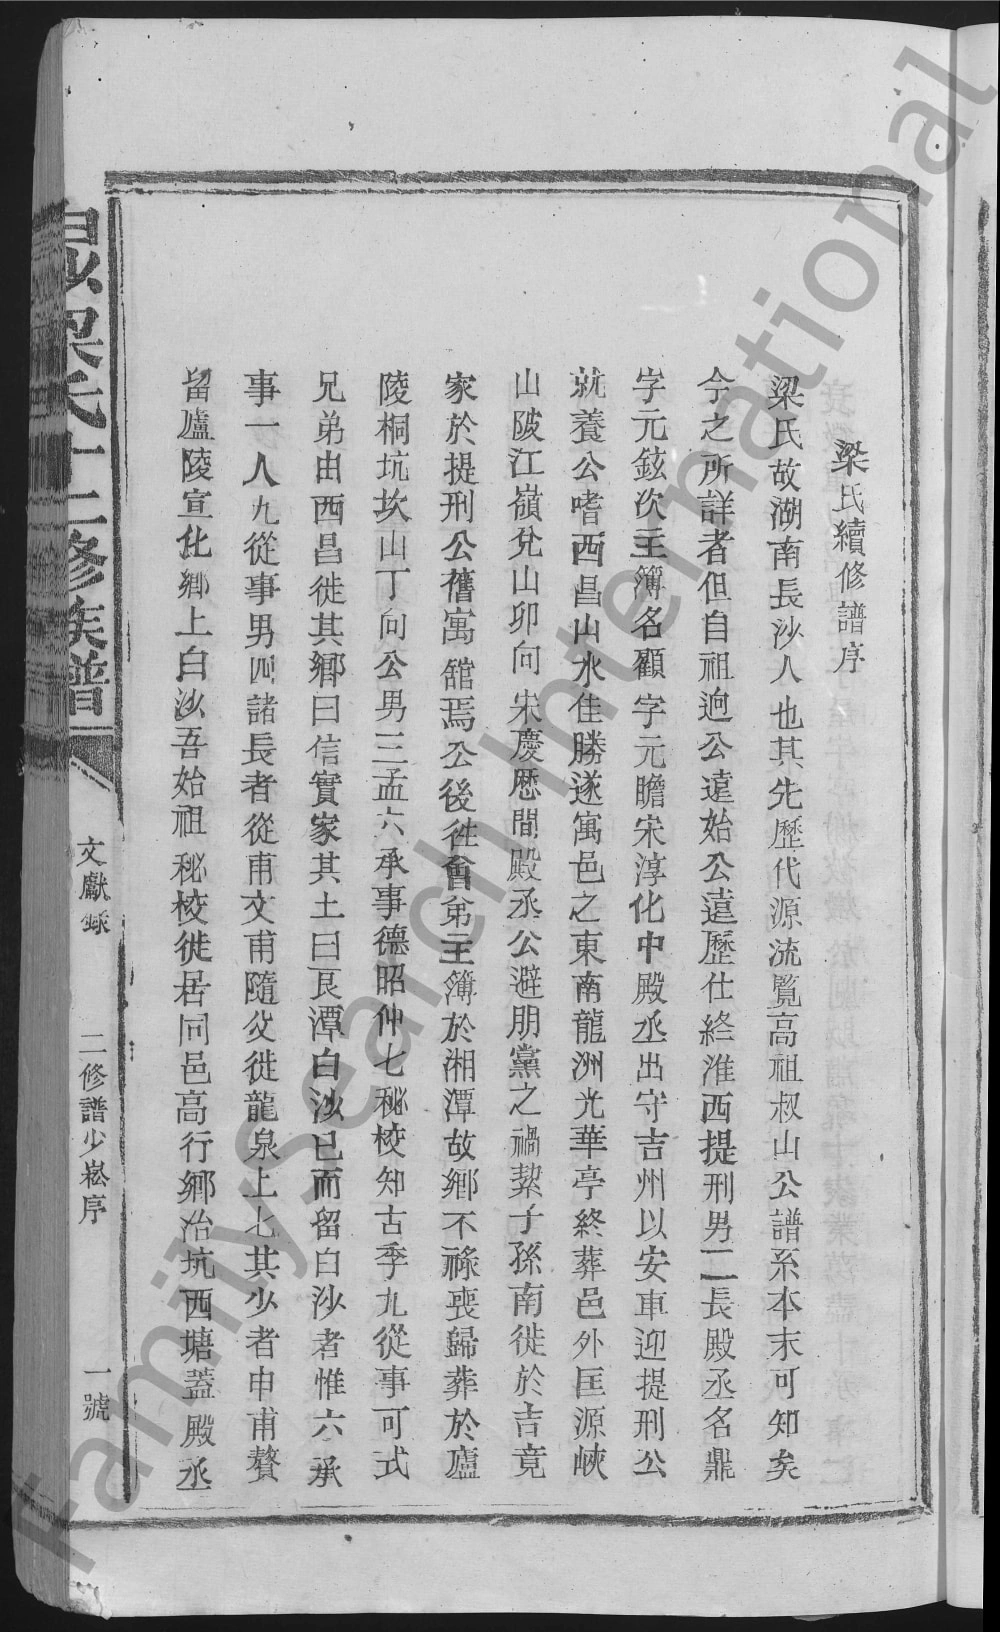 梁氏續修譜序
梁氏故湖南長沙人也其先歷代源流覧高祖叔山公譜系本末可知矣
今之所詳者但自祖逈公遠始公遠歷仕終淮西提刑男二長殿丞名鼎
字元鉉次主簿名顧字元瞻宋淳化中殿丞出守吉州以安車迎提刑公
就養公嗜西昌山水佳勝遂寓邑之東南龍洲光華亭終葬邑外匡源峽
山陂江嶺兌山卯向宋慶厯間殿丞公避朋黨之禍挈子孫南徙於吉竟
家於提刑公舊寓舘焉公後徃會弟主簿於湘潭故鄉不祿喪歸葬於廬
陵桐坑坎山丁向公男三孟六承事德昭仲七秘校知古季九從事可式
兄弟由西昌徙其鄉曰信實家其土曰艮潭白沙已而留白沙者惟六承
事一人九從事男四諸長者從甫文甫隨父徙龍泉上七其少者申甫贅
留廬陵宣化鄉上白沙吾始祖秘校徙居同邑高行鄉治坑西塘蓋殿丞
梁氏十二修族譜
文獻錄
二修譜少崧序
一號
FamilySearch International